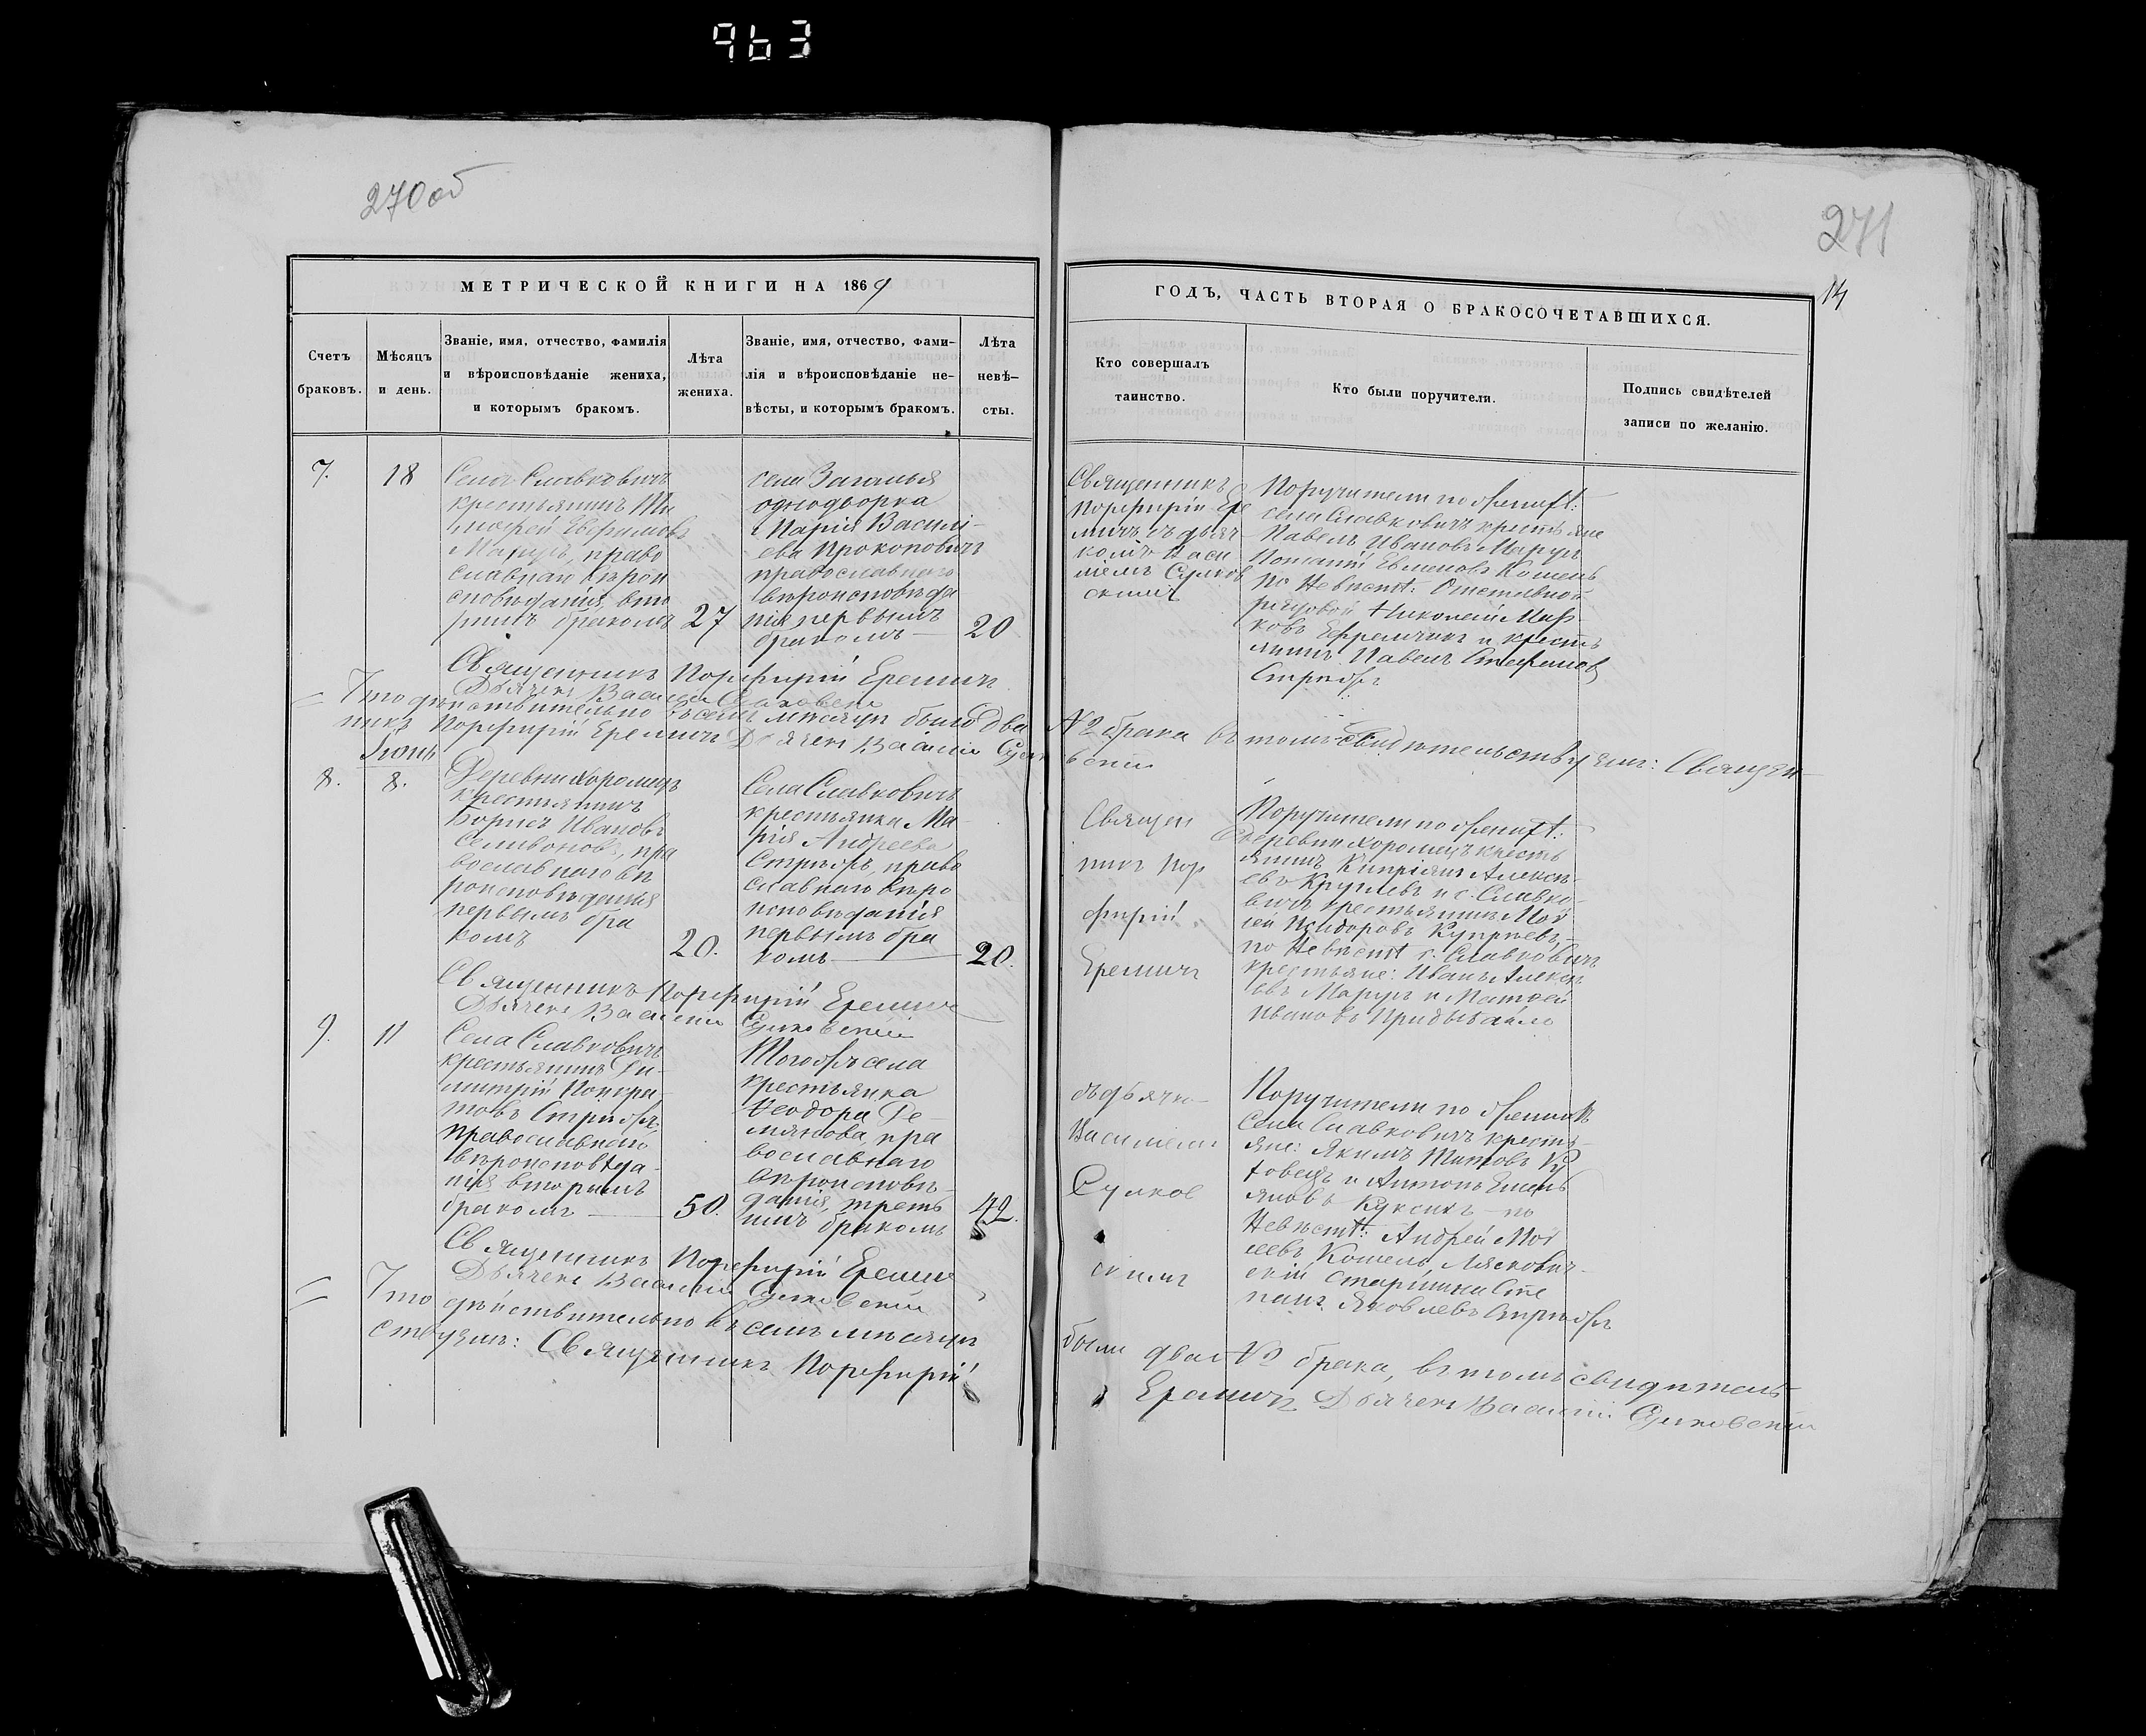 963
270об
271
14
МЕТРИЧЕСКОЙ КНИГИ НА 1869
ГОДЪ, ЧАСТЬ ВТОРАЯ О БРАКОСОЧЕТАВШИХСЯ.
Счетъ
браковъ.
Мѣсяцъ
и день.
Званіе, имя, отчество, фамилія
и вѣроисповѣданіе жениха,
и которымъ бракомъ.
Лѣта
жениха.
Званіе, имя, отчество, фами-
лія и вѣроисповѣданіе не-
вѣсты, и которымъ бракомъ.
Лѣта
невѣ-
сты.
Кто совершалъ
таинство.
Кто были поручители.
Подпись свидѣтелей
записи по желанію.
7.
18
Села Славковичъ
крестьянинъ Ти
моѳей Евфимовъ
Маруцъ, право
славнаго вѣрои
сповѣданія, вто
рымъ бракомъ
27
села Загалья
однодворка
Марія Василі-
ева Прокоповичъ
православнаго
вѣроисповѣда
нія первымъ
бракомъ
20
Священникъ
Порфирій Ере
мичъ съ дьяч
комъ Васи
ліемъ Сулков
скимъ
Поручители по жениху:
села Славковичъ крестьяне
Павелъ Ивановъ Маруцъ
Евменовъ Кошель
по Невѣстѣ: Отставной
рядовой
и кресть
янинъ Павелъ Стефановъ
Священникъ Порфирій Еремичъ
Дьячекъ Василій Сулковскій
Что дѣйствительно въ семъ мѣсяцѣ было два
№ 2 брака въ томъ свидѣтельствуемъ: Священ-
никъ Порфирій Еремичъ Дьячекъ Василій Сулко
вскій
Іюнь
8.
8.
Деревни Хоромцъ
крестьянинъ
Борисъ Ивановъ
Селивоновъ, пра
вославнаго вѣ
роисповѣданія
первымъ бра
комъ
20.
Села Славковичъ
крестьянка Ма-
рія Андреева
право
славнаго вѣро
исповѣданія
первымъ бра
комъ
20.
Священ
никъ Пор
фирій
Еремичъ
Поручители по жениху:
деревни Хоромцъ кресть
янинъ Кипріянъ Алексѣ-
евъ и с. Славко-
вичъ крестьянинъ Мой
сей Исидоровъ
по Невѣстѣ с. Славковичъ
крестьяне: Иванъ Алексѣ
евъ Маруцъ и Матѳей
Ивановъ
Священникъ Порфирій Еремичъ
Дьячекъ Василій Сулковскій
9.
11
Села Славковичъ
крестьянинъ Ди-
митрій Понкра-
товъ
православнаго
вѣроисповѣда-
нія вторымъ
бракомъ
50.
Тогожъ села
крестьянка
Ѳеодора Де-
мянова, пра
вославнаго
вѣроисповѣ-
данія, треть
имъ бракомъ
42.
съ дьячко-
Василіемъ
Сулков
скимъ
Поручители по жениху
Села Славковичъ кресть-
яне: Якимъ Титовъ
и Антонъ Емель
яновъ по
Невѣстѣ: Андрей Мой
сеевъ Кошель
Сте
панъ Яковлевъ
Священникъ Порфирій Еремичъ
Дьячекъ Василій Сулковскій
Что дѣйствительно въ семъ мѣсяцѣ
были два № брака, въ томъ свидѣтель-
ствуемъ: Священникъ Порфирій
Еремичъ Дьячекъ Василій Сулковскій